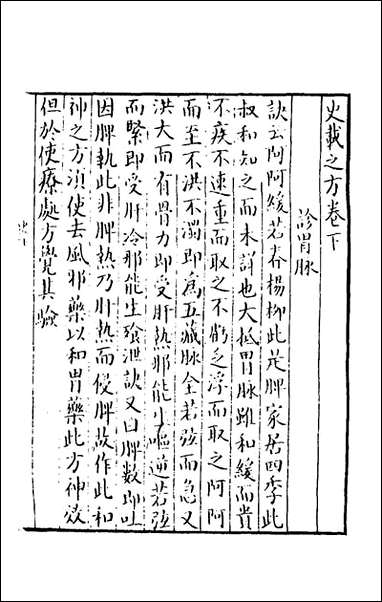 史載之方卷下
診胃脉
訣云阿阿緩若春楊柳此是脾家居四季此
叔和知之而未詳也大抵胃脉雖和緩而貴
不疾不速重而取之不鄉乏浮而取之阿阿
而至不洪不濁即為五藏脉全若弦而急又
洪大而有骨力即受肝熱邪能生嘔逆若弦
而緊即受肝冷邪能生飱泄訣又曰脾數即吐
因脾執此非脾熱乃肝熱而侵脾故作此和
神之方須使去風邪藥以和胃藥此方神效
但於使療處方覺其驗